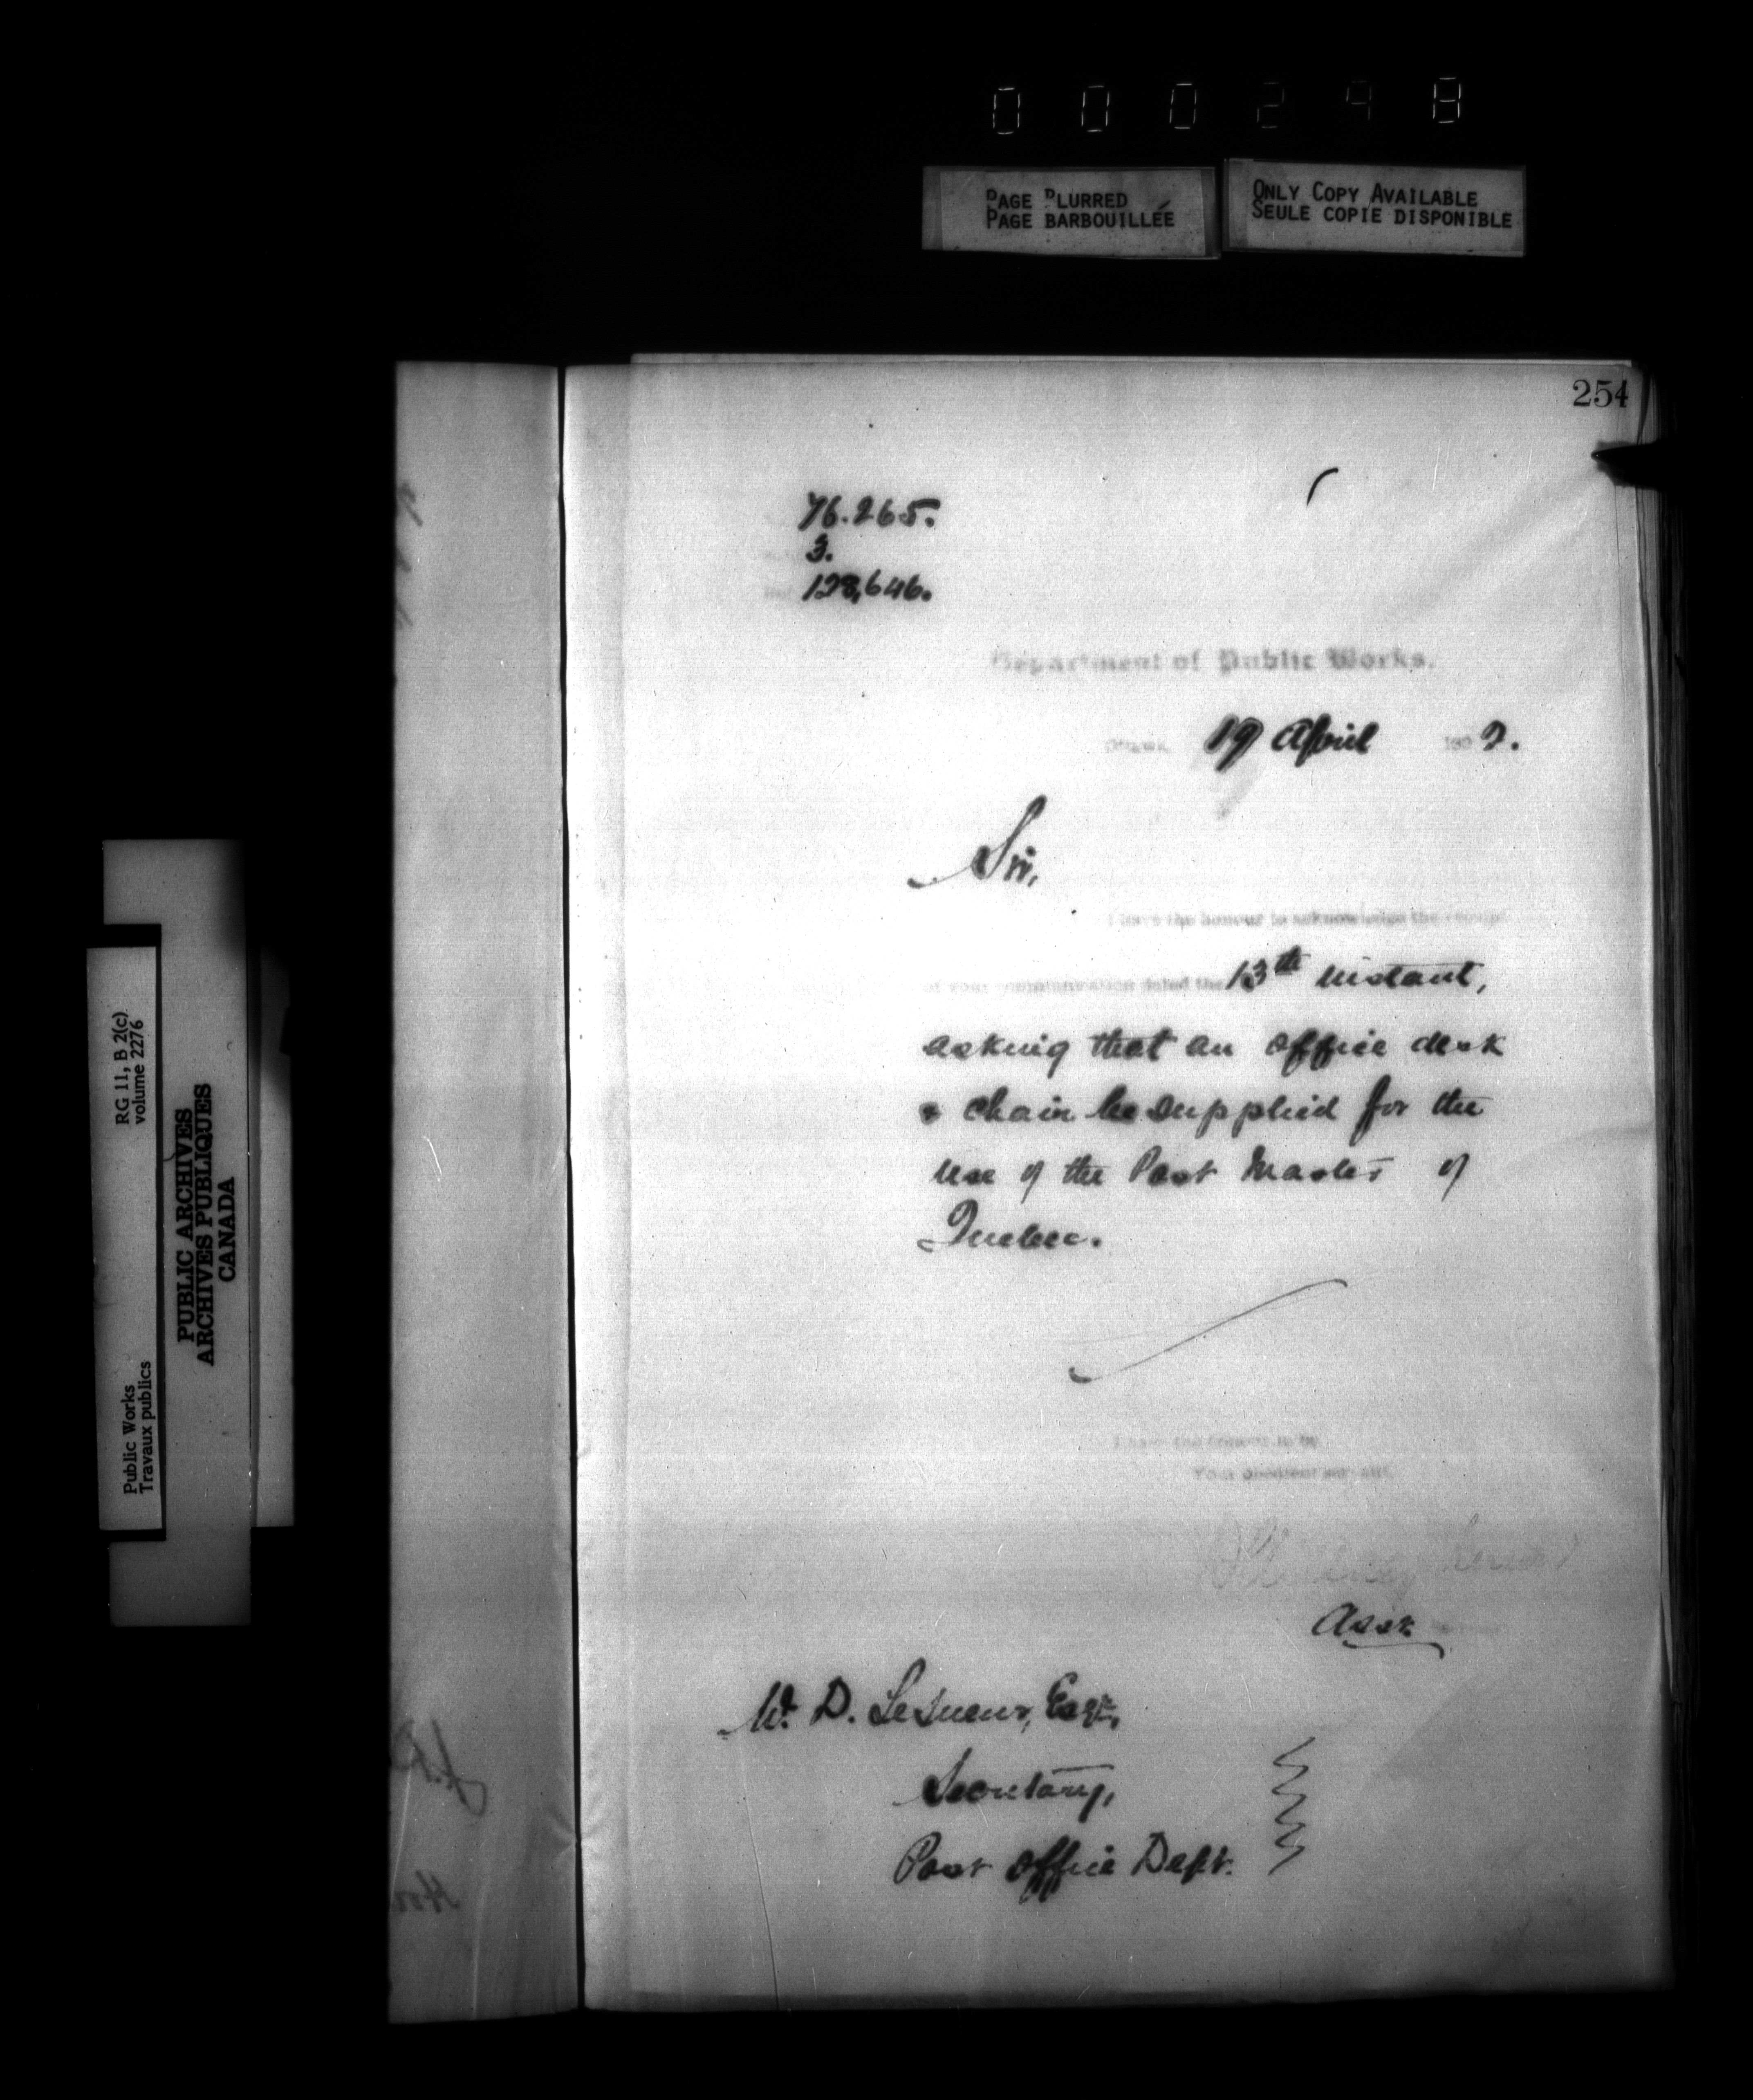 000298
PAGE BLURRED
PAGE BARBOUILLÉE
ONLY COPY AVAILABLE
SEULE COPIE DISPONIBLE
254
76.265.
3.
128,646.
Department of Public Works.
Ottawa, 19 April 1892.
Sir,
I have the honour to acknowledge the receipt
of your communication dated the 13th instant,
asking that an office desk
& chair be supplied for the
use of the Post Master of
Quebec.
I have the honour to be
Your obedient servant,
Asst.
W. D. LeSueur, Esqr.,
Secretary,
Post Office Dept.
RG 11, B 2(c)
volume 2276
PUBLIC ARCHIVES
ARCHIVES PUBLIQUES
CANADA
Public Works
Travaux publics